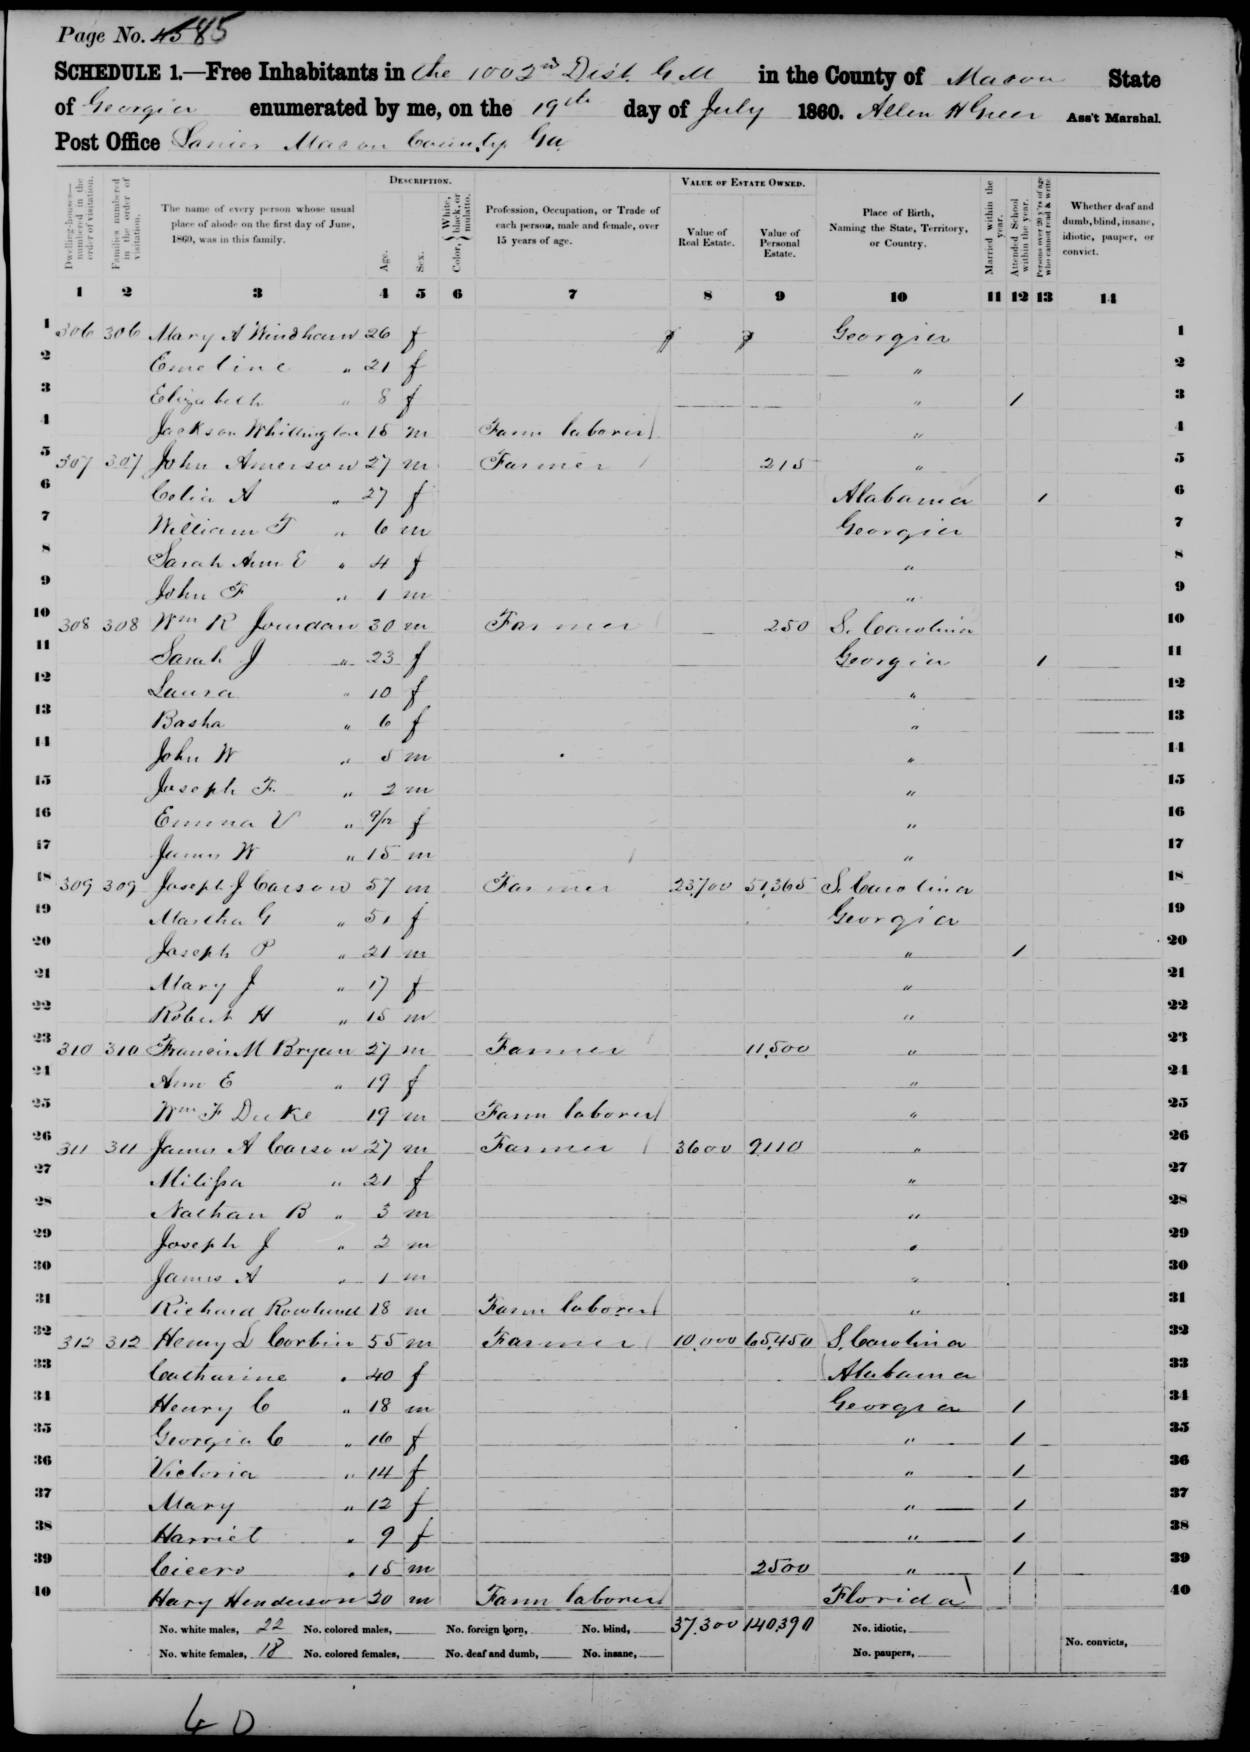 Page No. 4585
SCHEDULE 1.—Free Inhabitants in the 1002nd Dist. G.M in the County of Macon State
of Georgia enumerated by me, on the 19th day of July 1860. Allen H Greer Ass't Marshal.
Post Office Lanier Macon County Ga
Dwelling-houses—numbered in the order of visitation.
Families numbered in the order of visitation.
The name of every person whose usual place of abode on the first day of June, 1860, was in this family.
DESCRIPTION.
Age.
Sex.
Color, { White, black, or mulatto.
Profession, Occupation, or Trade of each person, male and female, over 15 years of age.
VALUE OF ESTATE OWNED.
Value of Real Estate.
Value of Personal Estate.
Place of Birth, Naming the State, Territory, or Country.
Married within the year.
Attended School within the year.
Persons over 20 y'rs of age who cannot read & write.
Whether deaf and dumb, blind, insane, idiotic, pauper, or convict.
1 2 3 4 5 6 7 8 9 10 11 12 13 14
1 306 306 Mary A Windham 26 f Georgia 1
2 Emeline " 21 f " 2
3 Elizabeth " 8 f " / 3
4 Jackson Whittington 15 m Farm laborer " 4
5 307 307 John Amerson 27 m Farmer 215 " 5
6 Celia A " 27 f Alabama / 6
7 William T " 6 m Georgia 7
8 Sarah Ann E " 4 f " 8
9 John F " 1 m " 9
10 308 308 Wm R Jourdan 30 m Farmer 250 S. Carolina 10
11 Sarah J " 23 f Georgia / 11
12 Laura " 10 f " 12
13 Basha " 6 f " 13
14 John W " 5 m " 14
15 Joseph F. " 2 m " 15
16 Emma V " 9/12 f " 16
17 James W " 15 m " 17
18 309 309 Joseph J Carson 57 m Farmer 23,700 51,365 S. Carolina 18
19 Martha G " 51 f Georgia 19
20 Joseph P " 21 m " / 20
21 Mary J " 17 f " 21
22 Robert H " 15 m " 22
23 310 310 Francis M Bryan 27 m Farmer 11,500 " 23
24 Ann E " 19 f " 24
25 Wm F Duke 19 m Farm laborer " 25
26 311 311 James A Carson 27 m Farmer 3600 9,110 " 26
27 Milissa " 21 f " 27
28 Nathan B " 3 m " 28
29 Joseph J " 2 m " 29
30 James A " 1 m " 30
31 Richard Rowland 18 m Farm laborer " 31
32 312 312 Henry D Corbin 55 m Farmer 10,000 65,450 S. Carolina 32
33 Catharine " 40 f Alabama 33
34 Henry C " 18 m Georgia / 34
35 Georgia C " 16 f " / 35
36 Victoria " 14 f " / 36
37 Mary " 12 f " / 37
38 Harriet " 9 f " / 38
39 Cicero " 15 m 2500 " / 39
40 Hary Henderson 20 m Farm laborer Florida 40
No. white males, 22 No. colored males, No. foreign born, No. blind, 37,300 140,390 No. idiotic,
No. white females, 18 No. colored females, No. deaf and dumb, No. insane, No. paupers, No. convicts,
40